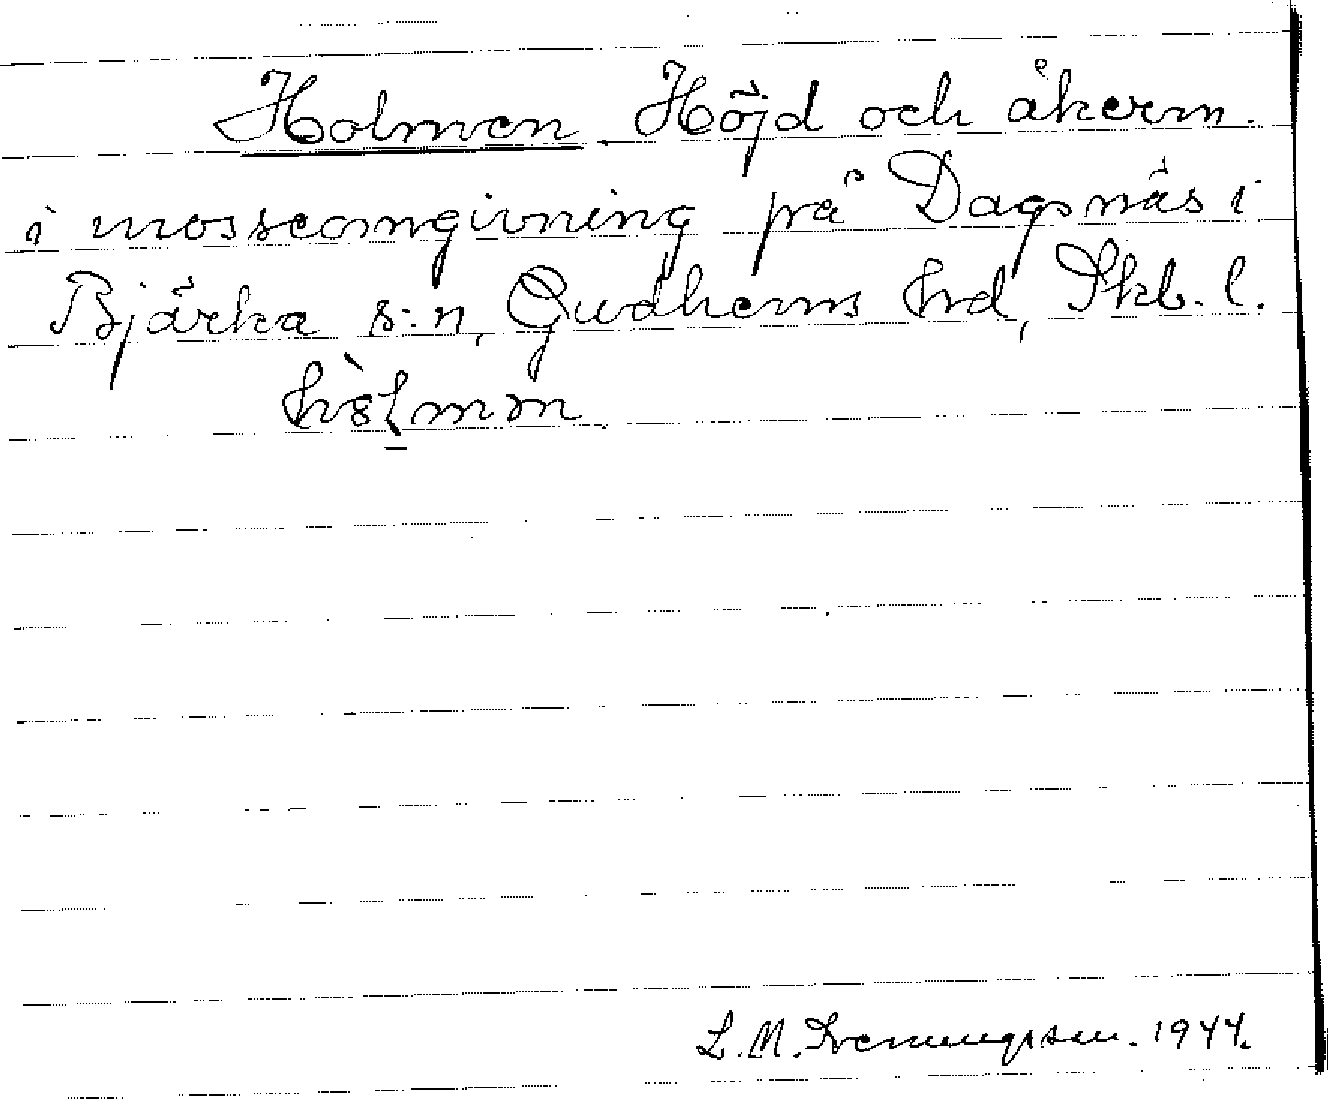 Holmen. Höjd och åkerm.
i mosseomgivning på Dagsnäs i
Bjärka s:n, Gudhems hrd, Skb. l.
L. M. Svenungsson. 1944.